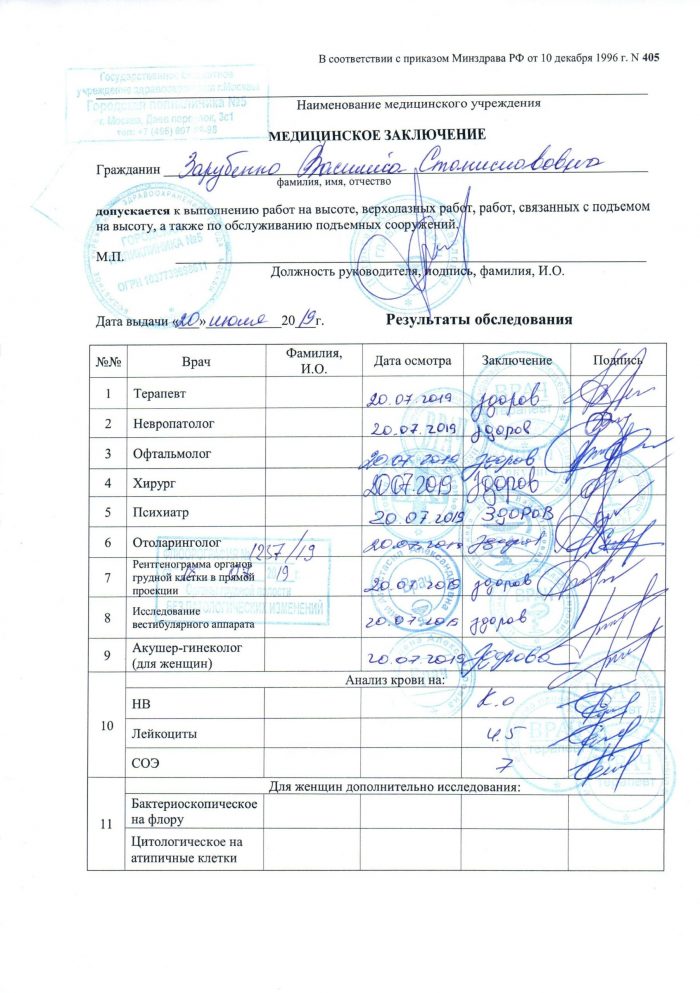 В соответствии с приказом Минздрава РФ от 10 декабря 1996 г. N 405
Государственное бюджетное
учреждение здравоохранения г.Москвы
Городская поликлиника №5
г. Москва,
Наименование медицинского учреждения
МЕДИЦИНСКОЕ ЗАКЛЮЧЕНИЕ
Гражданин Зарубенко Станиславовича
фамилия, имя, отчество
допускается к выполнению работ на высоте, верхолазных работ, работ, связанных с подъемом
на высоту, а также по обслуживанию подъемных сооружений.
М.П.
ПОЛИКЛИНИКА №5
Должность руководителя, подпись, фамилия, И.О.
Дата выдачи «20» июля 2019 г.
Результаты обследования
№№ Врач Фамилия, И.О. Дата осмотра Заключение Подпись
1 Терапевт 20.07.2019 здоров
2 Невропатолог 20.07.2019 здоров
3 Офтальмолог 20.07.2019 здоров
4 Хирург 20.07.2019 здоров
5 Психиатр 20.07.2019 ЗДОРОВ
6 Отоларинголог 1237/19 20.07.2019 здоров
7 Рентгенограмма органов
грудной клетки в прямой
проекции 20.07.2019 здоров
8 Исследование
вестибулярного аппарата 20.07.2019 здоров
9 Акушер-гинеколог
(для женщин) 20.07.2019 Здорова
10 Анализ крови на:
НВ
Лейкоциты 4.5
СОЭ 7
ВРАЧ
11 Для женщин дополнительно исследования:
Бактериоскопическое
на флору
Цитологическое на
атипичные клетки